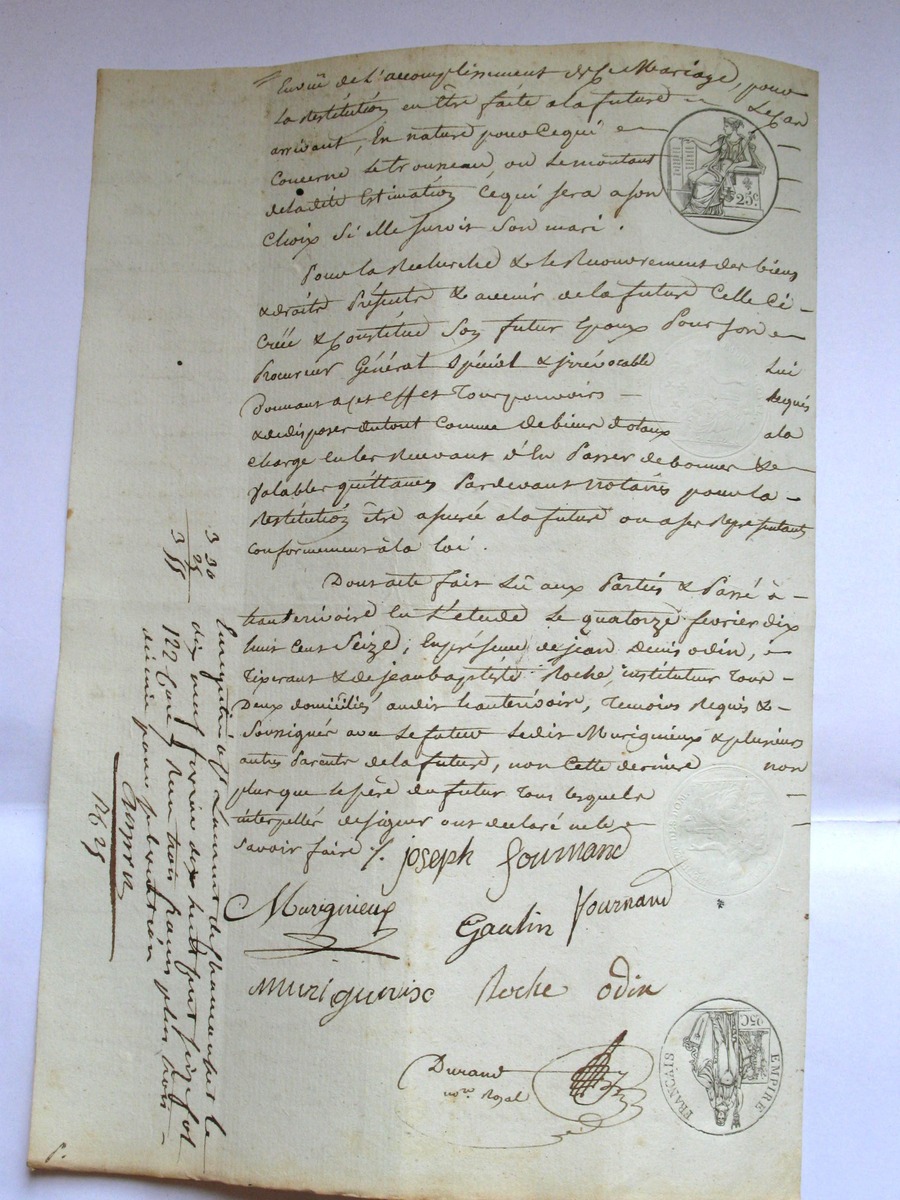 En vüe de L'accomplissement du Mariage, pour
La Restitution en Être faite a la future Le Cas
arrivant, En nature pour Cequi
Concerne Le trousseau, ou Le montant
de la dite Estimation Cequi sera a son
Choix Si elle survit Son mari.
25c
Pour La Recherche & Le Recouvrement des biens
& droits Présents & avenir de la future Celle Ci
Créé & Constitue Son futur Epoux Pour Son
Procureur Général Spécial & irrévocable Lui
Donnant a cet effet Tous pouvoirs Requis
& de disposer du tout Comme de biens dotaux a la
charge en les Recevant d'En Passer de bonnes &
Valables quittances Pardevant Notaires pour La
Restitution être assurée a la future ou a ses Représentants
Conformement à la loi.
Dont acte fait Lû aux Parties & Passé à
hauterivoire En L'etude Le quatorze fevrier dix
huit Cent Seize, En présence de jean Denis odin,
Tixerant & de jean baptiste Roche, instituteur Tous
Deux domiciliés audit hauterivoire, Temoins Requis &
Soussignés avec Le futur Ledit Murigneux & plusieurs
autres Parents de la future, non Cette derniere non
plus que le père du futur Tous lesquels
interpellés de signer ont déclaré ne le
Savoir faire ./.
joseph fournand
Murigneux
Gaulin fournand
Murigneux Roche odin
Durand
nore Royal
EMPIRE FRANÇAIS
25C
3 30
25
3 55
Enregistré à St Laurent de Chamousset le
dix neuf fevrier dix huit cent seize fol
122 Case 7 Reçu trois francs plus trois
décime pour subvention
R 6 25